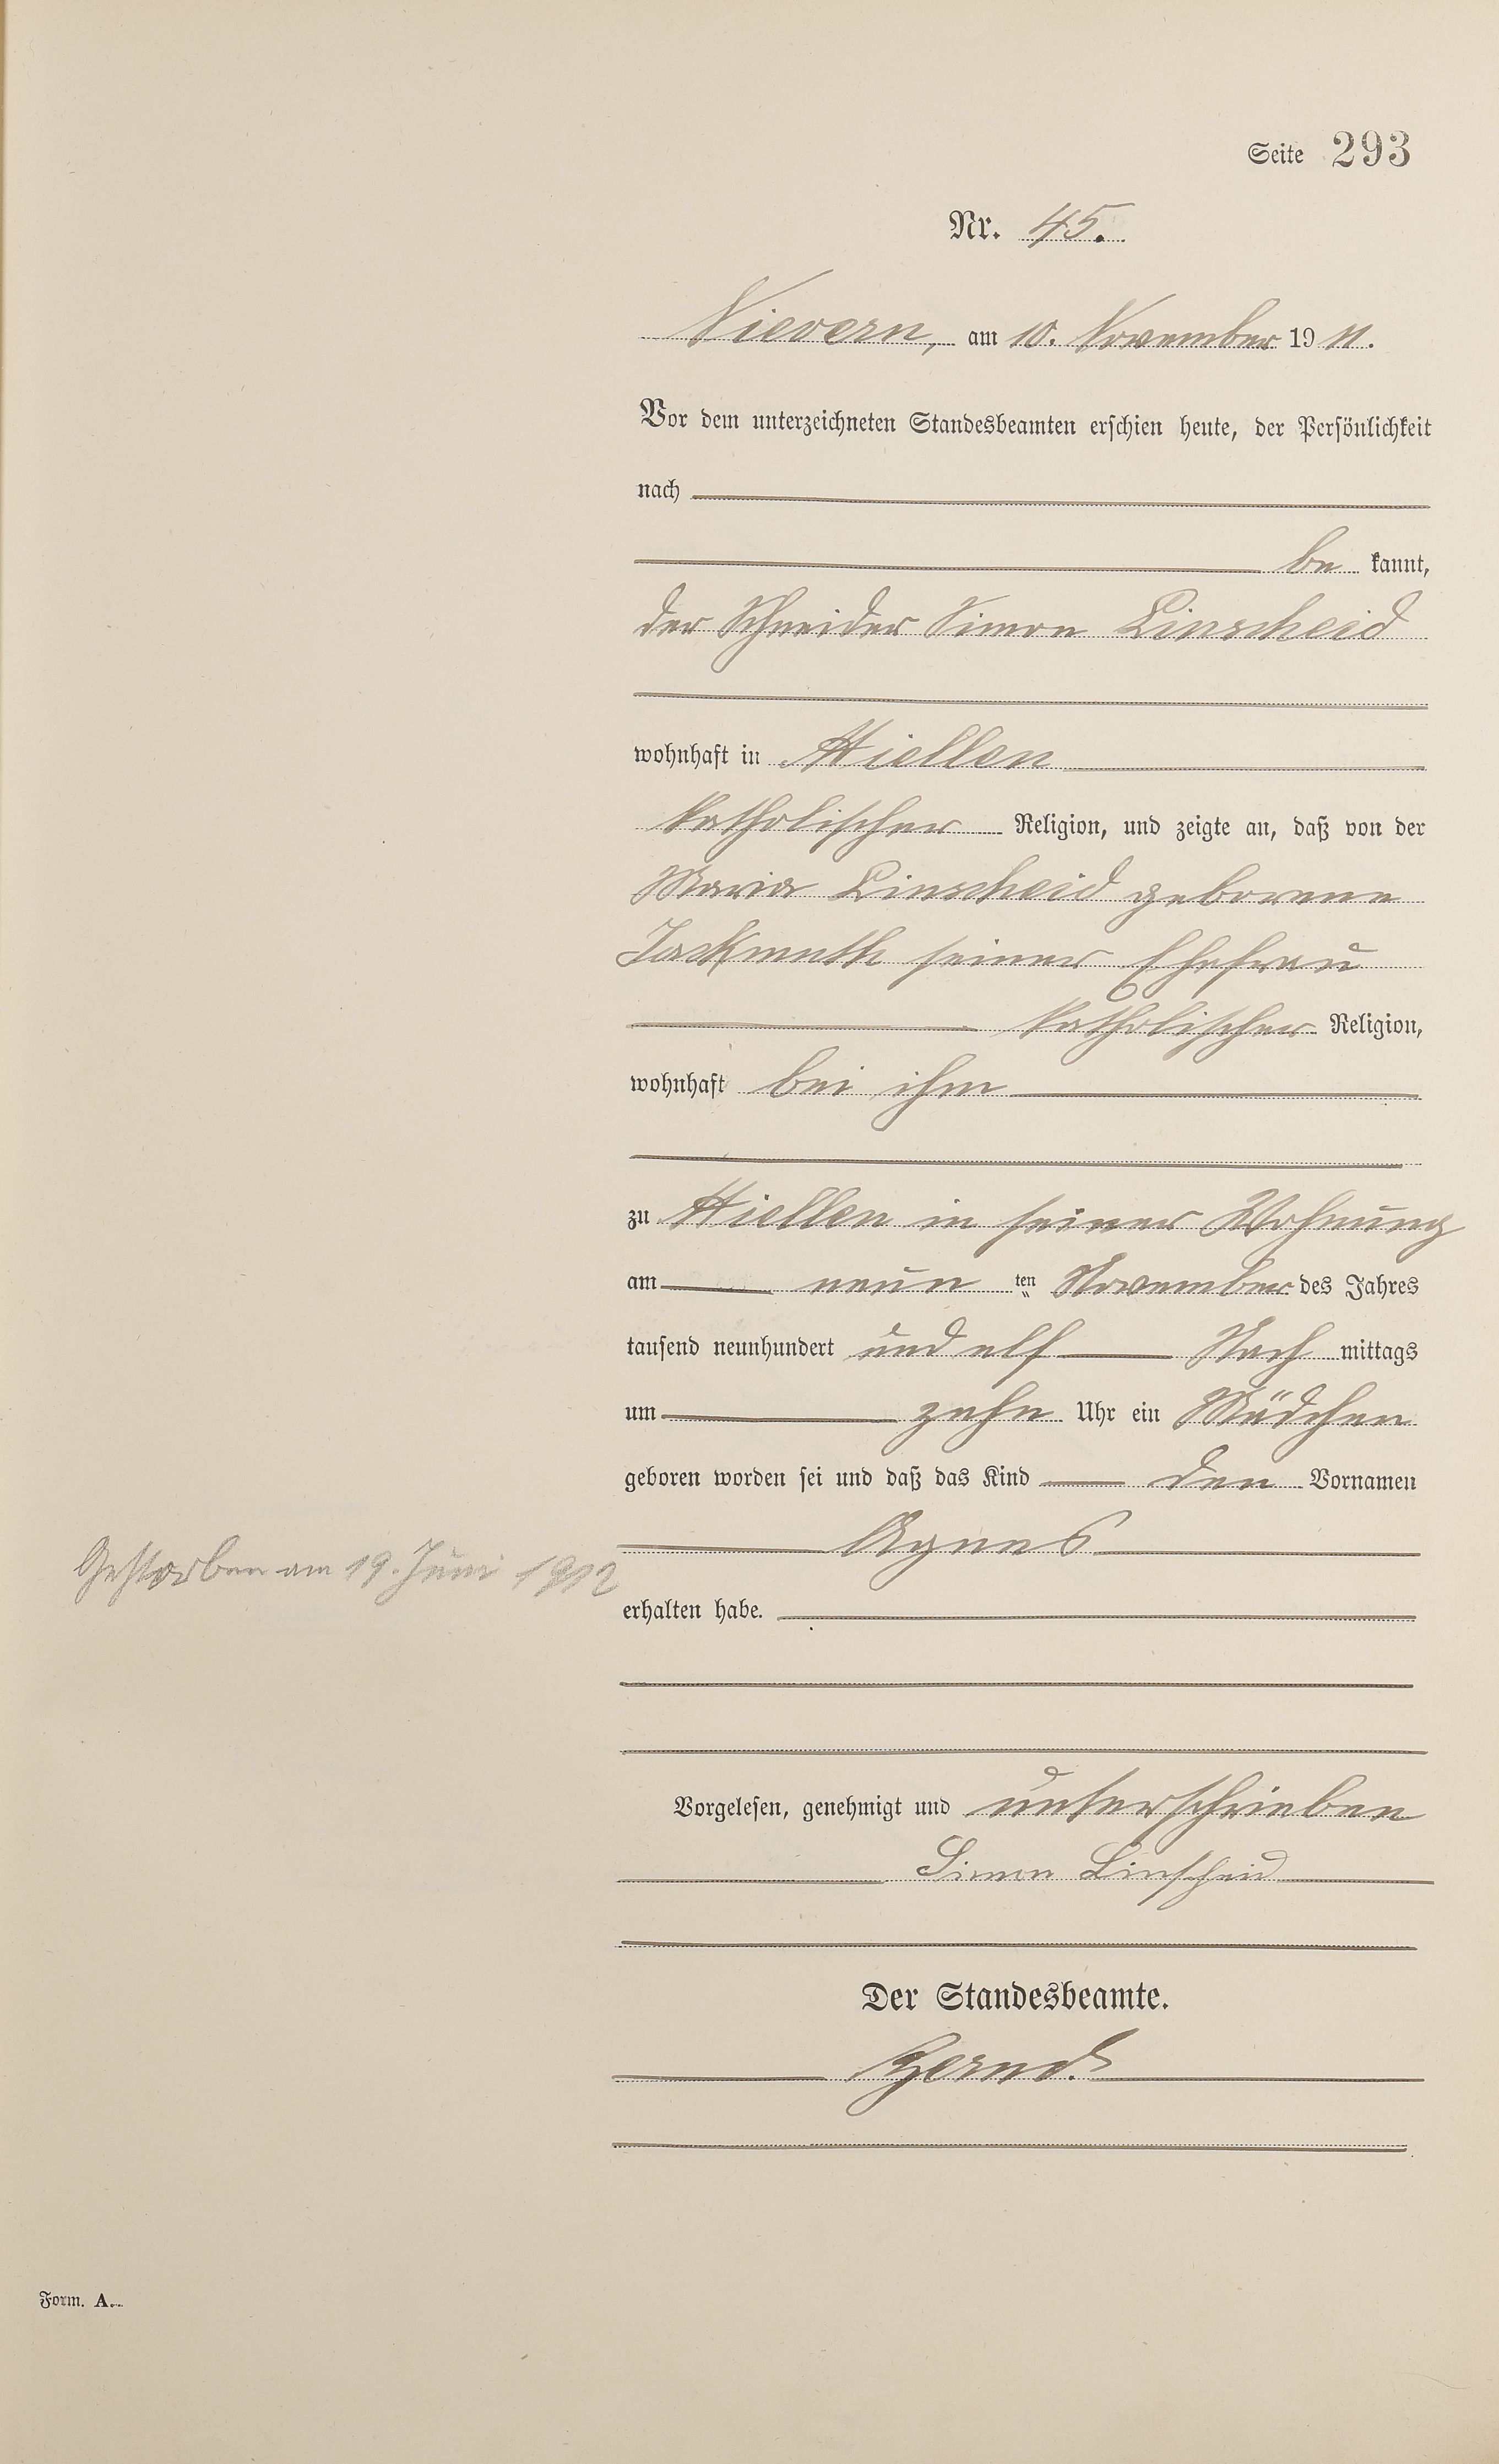 Seite 293
Nr. 45.
Nievern, am 10. November 1911.
Vor dem unterzeichneten Standesbeamten erschien heute, der Persönlichkeit
nach
be kannt,
der Schneider Simon Linscheid
wohnhaft in Miellen
katholischer Religion, und zeigte an, daß von der
Maria Linscheid geborene
Jackmuth seiner Ehefrau
katholischer Religion,
wohnhaft bei ihm
zu Miellen in seiner Wohnung
am neun ten November des Jahres
tausend neunhundert und elf Nach mittags
um zehn Uhr ein Mädchen
geboren worden sei und daß das Kind den Vornamen
Agnes
Gestorben am 19. Juni 1912
erhalten habe.
Vorgelesen, genehmigt und unterschrieben
Simon Linscheid
Der Standesbeamte.
Form. A.